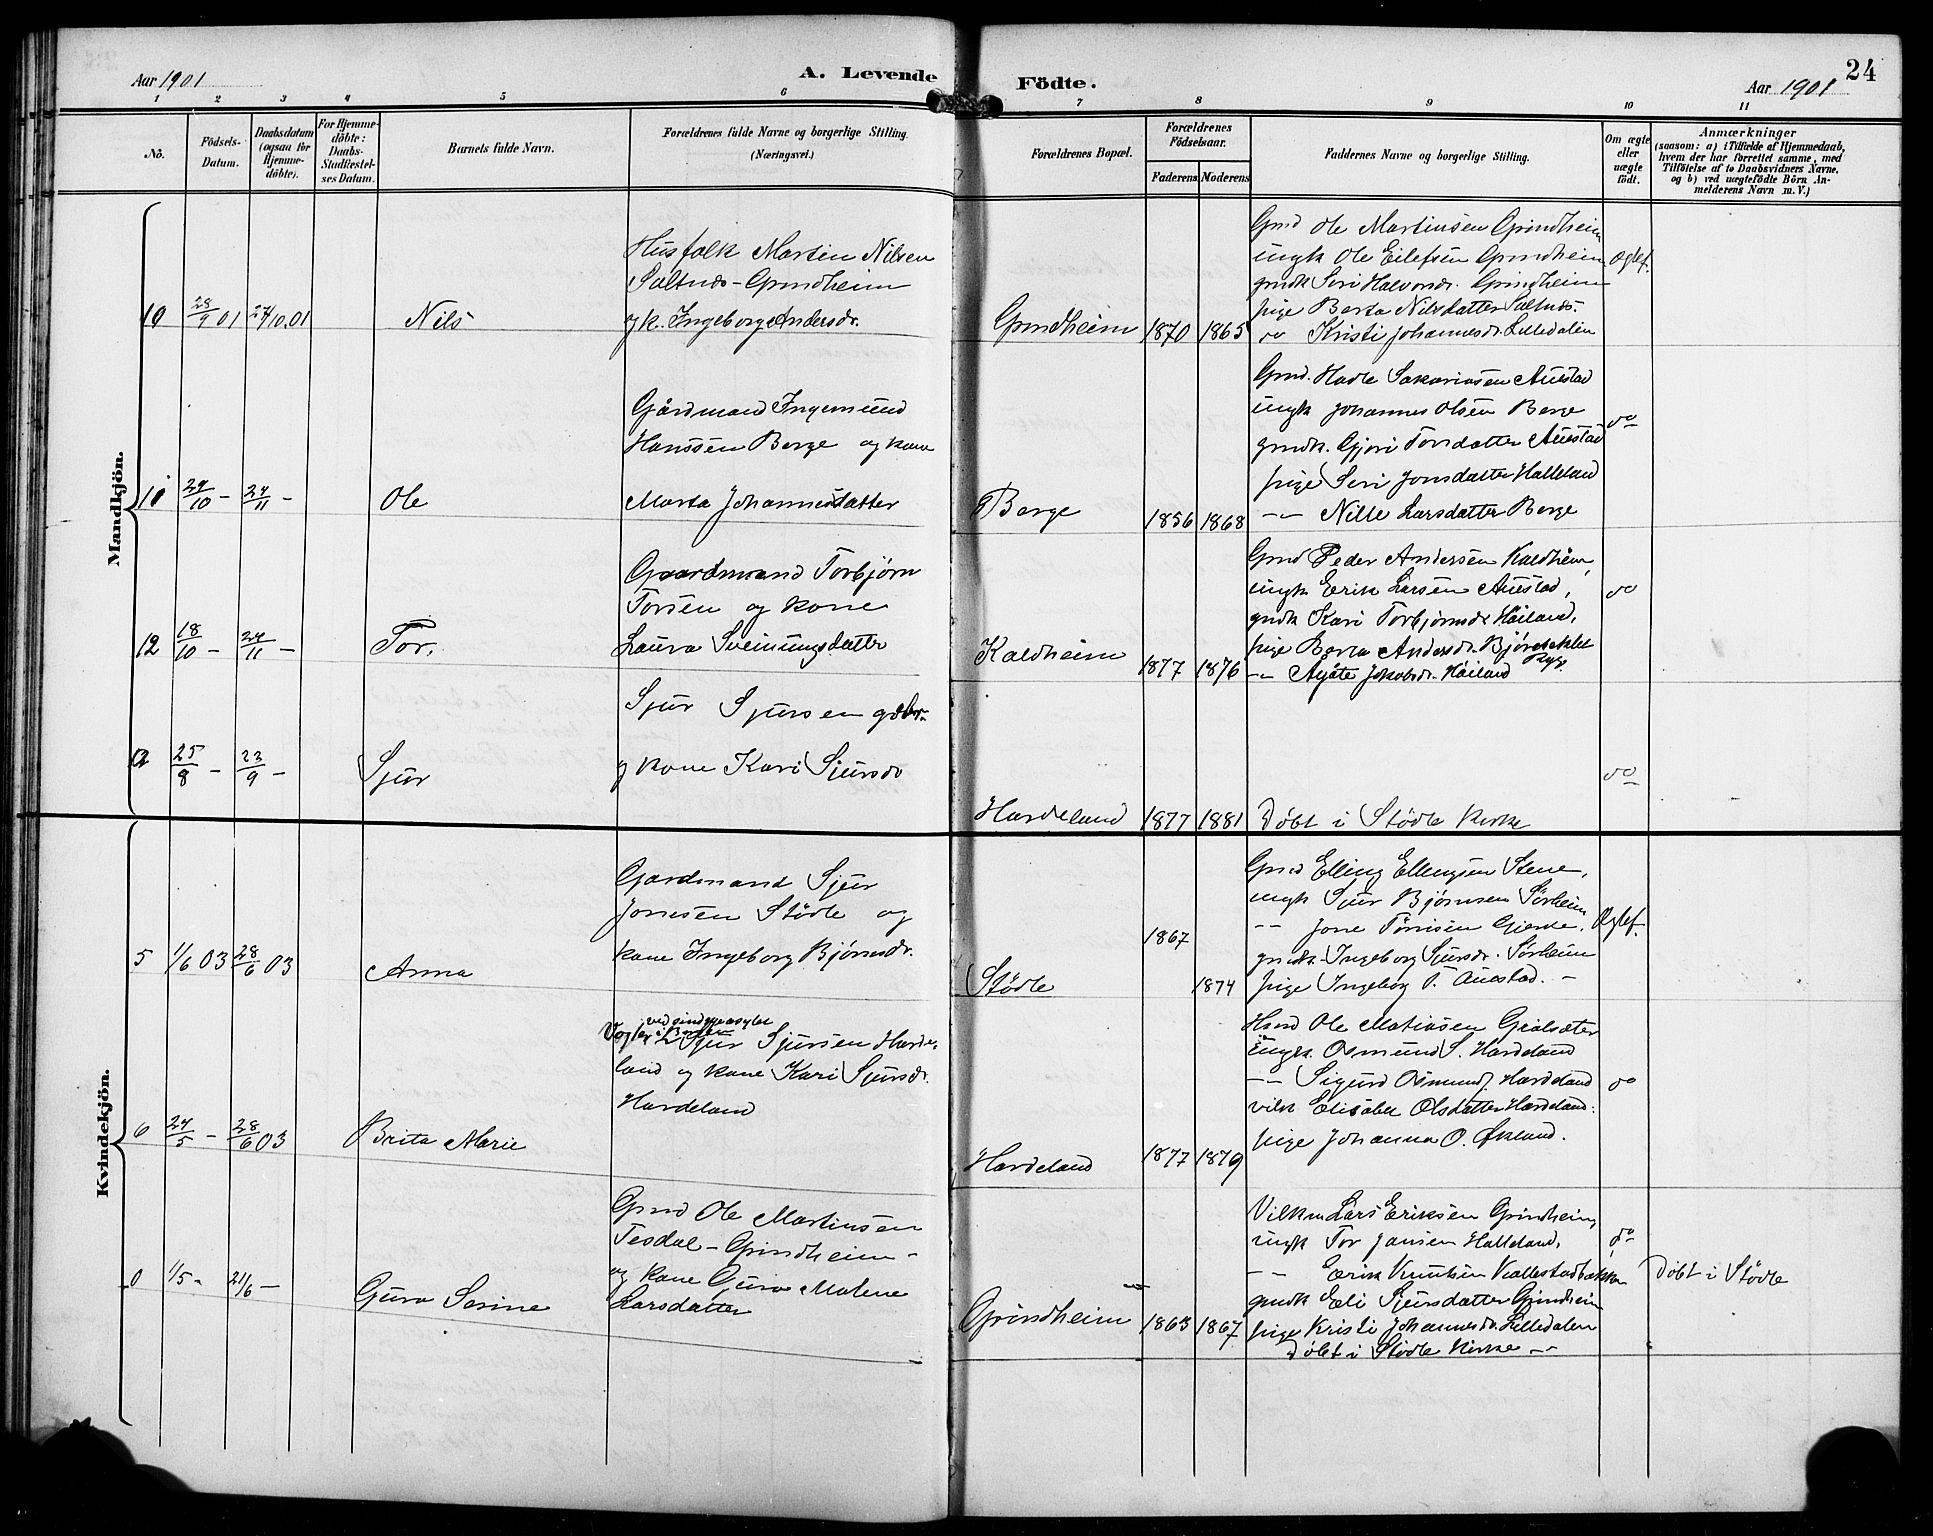 Aar 1901
A. Levende
Födte.
Aar 1901
24
1 2 3 4 5 6 7 8 9 10 11
No.
Födsels-Datum.
Daabsdatum (ogsaa for Hjemmedöbte).
For Hjemmedöbte: Daabs-Stadfestelses Datum.
Barnets fulde Navn.
Forældrenes fulde Navne og borgerlige Stilling.
(Næringsvei.)
Forældrenes Bopæl.
Forældrenes Födselsaar.
Faderens
Moderens
Faddernes Navne og borgerlige Stilling.
Om ægte eller uægte födt.
Anmærkninger
(saasom: a) i Tilfælde af Hjemmedaab,
hvem der har forrettet samme, med
Tilföielse af to Daabsvidners Navne,
og b) ved uægtefödte Börn An-
melderens Navn m. V.)
Mandkjön.
10 28/9 01 27/10.01 Nils
Husfolk Martin Nilsen
Saltnes-Grindheim
og k. Ingeborg Andersdr.
Grindheim 1870 1865
Gmd Ole Martinsen Grindheim
ungk Ole Eilefsen Grindheim
gmdk Siri Halvorsdr. Grindheim
pige Berta Nilsdatter Saltnes.
do Kristi Johannesdr. Lilledalen
Ægtef.
11 24/10 - 24/11 - Ole
Gårdmand Ingemund
Hanssen Berge og kone
Marta Johannesdatter
Berge 1856 1868
Gmd. Hadle Sakariasen Auestad
ungk Johannes Olsen Berge
gmdk. Gjøri Torsdatter Auestad
pige Siri Jonsdatter Halleland
-"- Nille Larsdatter Berge
do
12 18/10 - 24/11 - Tor.
Gaardmand Torbjørn
Torsen og kone
Laura Sveinungsdatter
Kaldheim 1877 1876
Gmd Peder Andersen Kaldheim,
ungk Erik Larsen Auestad,
gmdk Kari Torbjørnsdr Håiland,
pige Berta Andersdr.
-"- Agåte Jakobsdr. Håiland
do
25/8 - 23/9 - Sjur
Sjur Sjursen
og kone Kari Sjursdr
Hardeland 1877 1881 Döbt i Stödle Kirke
do
Kvindekjön.
5 1/6 03 28/6 03 Anna
Gardmand Sjur
Jonsen Stödle og
kone Ingeborg Bjørnsdr.
Stödle 1867 1874
Gmd Elling Ellingsen Stene,
ungk Sjur Bjørnsen Sørheim
-"- Jone Tørrisen Gjerde.
gmdk. Ingeborg Sjursdr. Sørheim
pige Ingeborg T. Auestad. -
Ægtef.
6 24/5 - 28/6 03 Brita Marie
ved sindssygeasylet
Vogter i Bergen
Sjur Sjursen Harde-
land og kone Kari Sjursdr.
Hardeland
Hardeland 1877 1879
Ole Matiasen
Ungk. Osmund S. Hardeland
-"- Sigurd Osmunds. Hardeland
vilk Elisabet Olsdatter Hardeland.
pige Johanna O. Økland.
do
0 1/5 - 21/6 - Gura Serine
Gmd Ole Martinsen
Tesdal-Grindheim-
og kone Gura Malene
Larsdatter
Grindheim 1863 1867
Vilkm Lars Eriksen Grindheim,
ungk Tor Jansen Halleland,
-"- Erik Knutsen Vallestadbakken
gmdk Eli Sjursdatter Grindheim
pige Kristi Johannesdr. Lilledalen
döbt i Stödle Kirke -"-
do
Döbt i Stödle